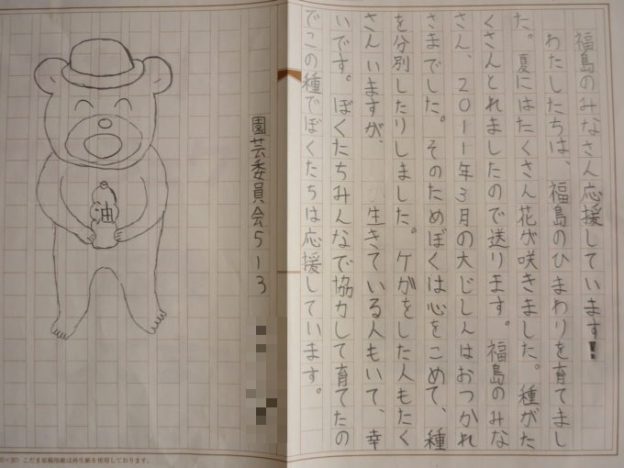 福島のみなさん応援しています!!
わたしたちは、福島のひまわりを育てまし
た。夏にはたくさん花が咲きました。種がた
くさんとれましたので送ります。福島のみな
さん、2011年3月の大じしんはおつかれ
さまでした。そのためぼくは心をこめて、種
を分別したりしました。ケガをした人もたく
さんいますが、生きている人もいて、幸
いです。ぼくたちみんなで協力して育てたの
でこの種でぼくたちは応援しています。
園芸委員会5-3
油
こだま
原稿用紙は再生紙を使用しております。